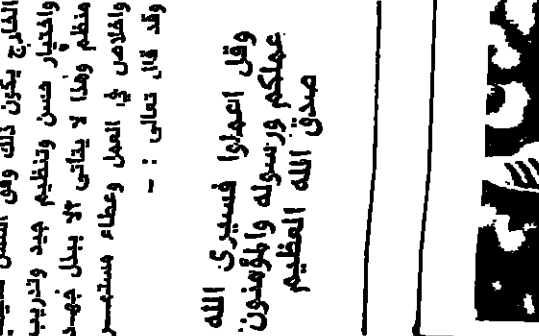 الخارج يكون ذلك وفق
واختيار حسن وتنظيم جيد وتدريب
منظم وهذا لا يتأتى الا ببذل جهد
واخلاص في العمل وعطاء مستمر
وقد قال تعالى : -
وقل اعملوا فسيرى الله
عملكم ورسوله والمؤمنون
صدق الله العظيم